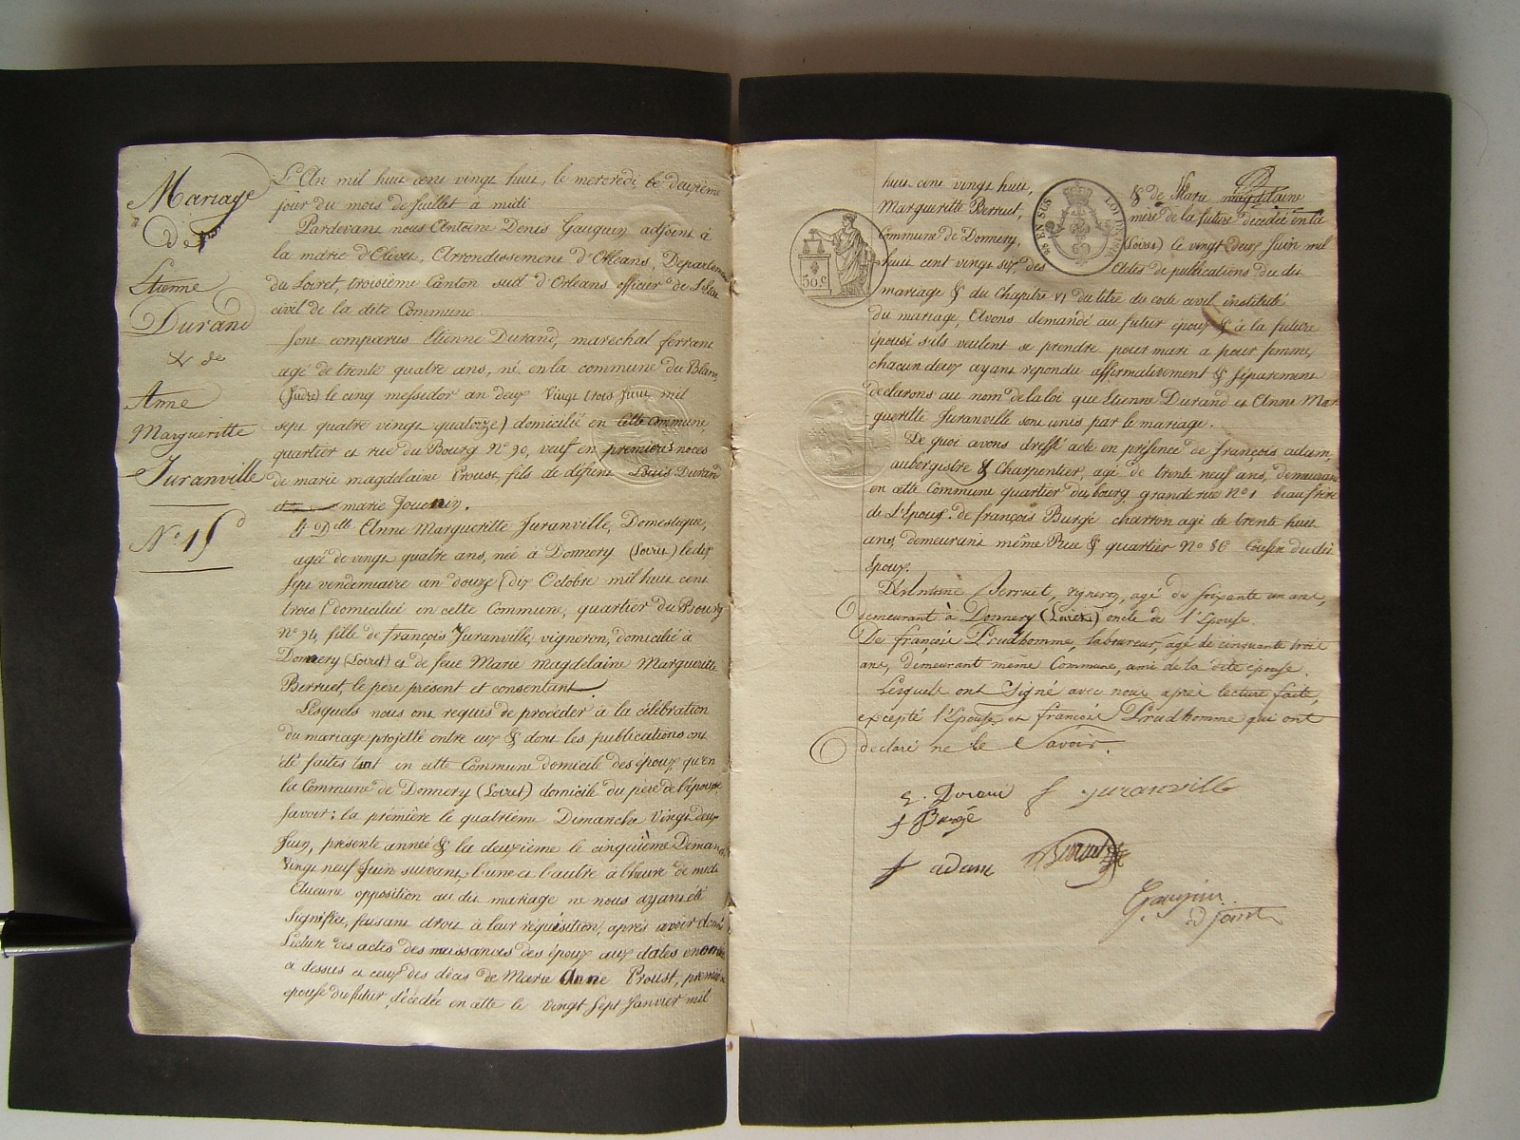 Mariage
de
Etienne
Durand
& de
Anne
Margueritte
Juranville
N° 15
L'An mil huit cent vingt huit, le mercredi le deuxieme
jour du mois de Juillet à midi
Pardevant nous Antoine Denis Gauguin adjoint à
la mairie d'Olivet, Arrondissement d'Orléans, Departement
du Loiret, troisième Canton sud d'Orléans officier de l'Etat
civil de la dite Commune.
Sont comparus Etienne Durand, marechal ferrant
agé de trente quatre ans, né en la commune du Blanc,
(Indre) le cinq messidor an deux Vingt trois Juin mil
sept quatre vingt quatorze) domicilié en cette Commune,
quartier et rue du Bourg N° 90, veuf en premieres noces
de marie magdelaine Proust, fils de défunt Louis Durand
et marie Jouanin.
& Delle Anne Margueritte Juranville, Domestique,
agée de vingt quatre ans, née à Donnery (Loiret) le dix
sept vendemiaire an douze (dix Octobre mil huit cent
trois) domiciliée en cette Commune, quartier du Bourg
N° 94, fille de françois Juranville, vigneron, domicilié à
Donnery (Loiret) et de feue Marie magdelaine Margueritte
Berruet, le pere present et consentant
Lesquels nous ont requis de procéder à la célébration
du mariage projetté entre eux & dont les publications ont
été faites tant en cette Commune domicile des époux qu'en
la Commune de Donnery (Loiret) domicile du père de l'épouse
Savoir: la première le quatrieme Dimanche Vingt deux
Juin, présente année & la deuxieme le cinquième Dimanche
Vingt neuf Juin suivant, l'une et l'autre à l'heure de midi
Aucune opposition au dit mariage ne nous ayant été
Signifiée, faisant droit à leur réquisition, après avoir donné
Lecture des actes des naissances des époux aux dates enoncées
ci dessus et ceux des décès de Marie Anne Proust, première
épouse du futur, décédée en cette le vingt Sept Janvier mil
huit cent vingt huit, & de Marie magdelaine
Margueritte Berruet, mère de la future decedée en la
Commune de Donnery, (Loiret) le vingt deux Juin mil
huit cent vingt six, des Actes de publications du dit
mariage & du Chapitre VI du titre du code civil intitulé
du mariage, Avons demandé au futur époux & à la future
épouse s'ils veulent se prendre pour mari et pour femme,
chacun d'eux ayant répondu affirmativement & séparement
declarons au nom de la loi que Etienne Durand et Anne Mar
gueritte Juranville sont unis par le mariage.
De quoi avons dressé acte en présence de françois adam
aubergistre & Charpentier, agé de trente neuf ans, demeurant
en cette Commune quartier du bourg grande rue N° 1 beau frère
de l'Epoux. de françois Burgé charron agé de trente huit
ans, demeurant même Rue & quartier N° 86 Cousin du dit
époux.
D'Antoine Berruet, vigneron, agé de soixante un ans,
demeurant à Donnery (Loiret) oncle de l'Epouse.
De françois Prudhomme, laboureur, agé de cinquante trois
ans, demeurant meme Commune, ami de la dite épouse.
Lesquels ont signé avec nous, après lecture faite,
excepté l'Epouse et francois Prudhomme qui ont
declaré ne le Savoir.
E. Durand f juranville
f Burgé
f adam Berruet
Gauguin
adjoint
EN SUS
50 c